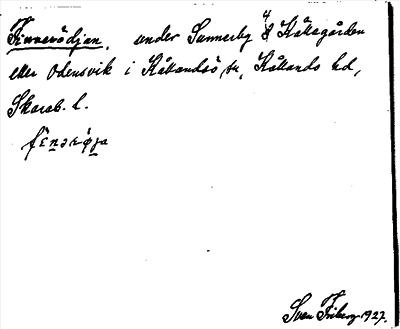 Finnerödjan, under Sunnerby 4 Kållagården
eller Odensvik i Kållandsö sn, Kållands hd,
Skarab. l.
Sven Friberg 1927.